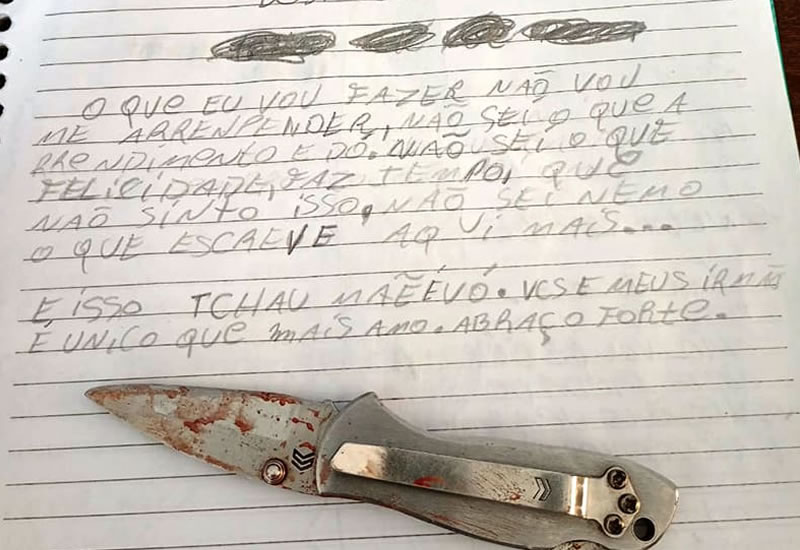 O QUE EU VOU FAZER NÃO VOU
ME ARRENPENDER, NÃO SEI O QUE A
RRENDIMENTO E DÓ. NÃO SEI O QUE
FELICIDADE, FAZ TEMPO, QUE
NÃO SINTO ISSO, NÃO SEI NEMO
O QUE ESCREVE AQUI MAIS...
E ISSO TCHAU MAÊEVÓ. VCS E MEUS IRMÃS
É UNICO QUE MAIS AMO. ABRAÇO FORTE.